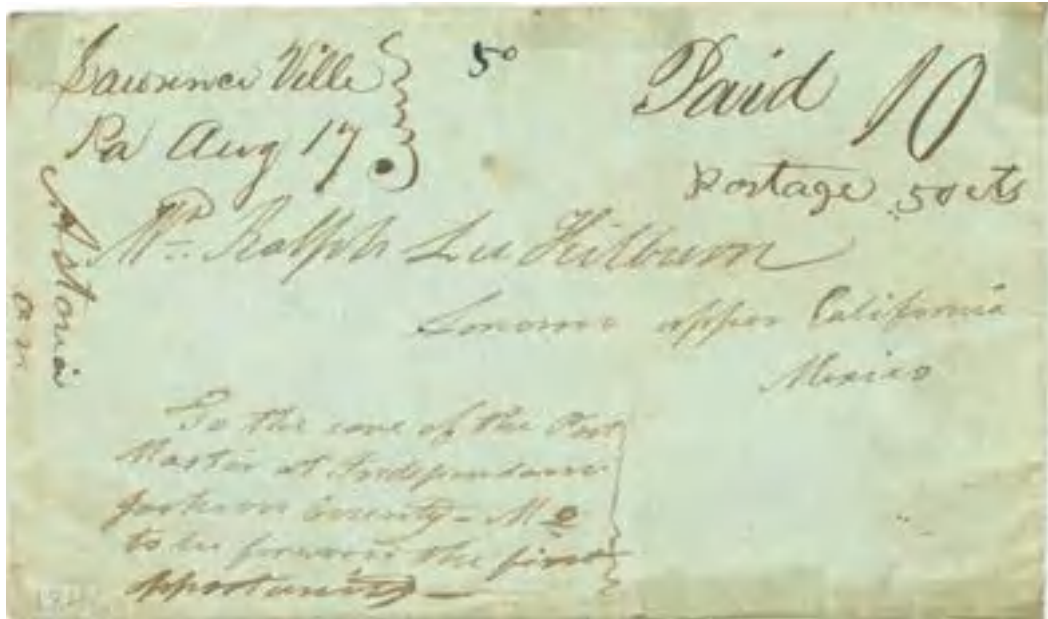 Lawrence Ville
Pa Aug 17.
50
Paid 10
Postage 50 cts
Mr. Ralph Lee Kilburn
Sonoma upper California
Mexico
Astoria
To the care of the Post
Master at Independance
Jackson County - Mo
to be forward the first
opportunity -